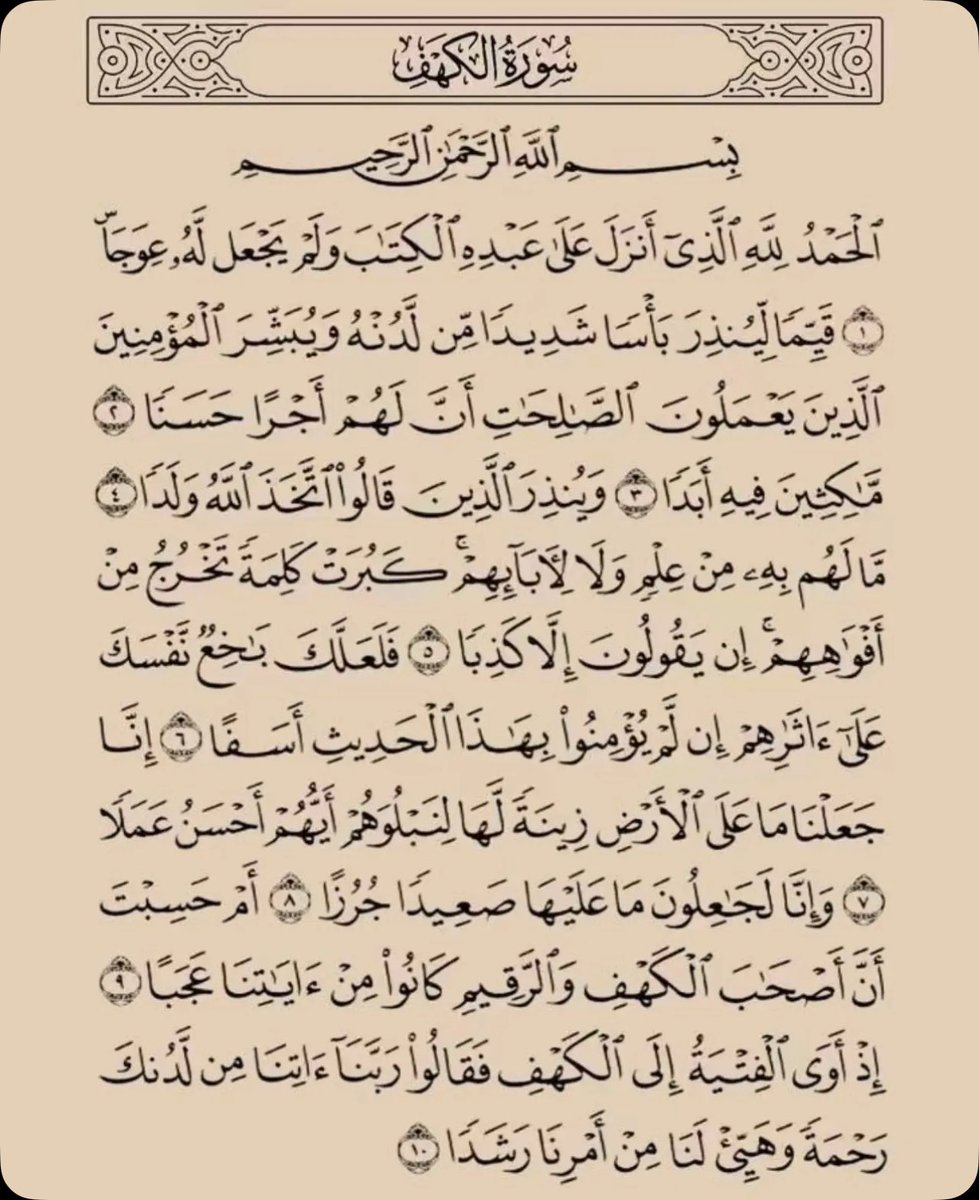 سُورَةُ الْكَهْفِ
بِسْمِ ٱللَّهِ ٱلرَّحْمَٰنِ ٱلرَّحِيمِ
ٱلْحَمْدُ لِلَّهِ ٱلَّذِىٓ أَنزَلَ عَلَىٰ عَبْدِهِ ٱلْكِتَٰبَ وَلَمْ يَجْعَل لَّهُۥ عِوَجَاۜ
١ قَيِّمٗا لِّيُنذِرَ بَأْسٗا شَدِيدٗا مِّن لَّدُنْهُ وَيُبَشِّرَ ٱلْمُؤْمِنِينَ
ٱلَّذِينَ يَعْمَلُونَ ٱلصَّٰلِحَٰتِ أَنَّ لَهُمْ أَجْرًا حَسَنٗا ٢
مَّٰكِثِينَ فِيهِ أَبَدٗا ٣ وَيُنذِرَ ٱلَّذِينَ قَالُوا۟ ٱتَّخَذَ ٱللَّهُ وَلَدٗا ٤
مَّا لَهُم بِهِۦ مِنْ عِلْمٖ وَلَا لِأٓبَآئِهِمْۚ كَبُرَتْ كَلِمَةٗ تَخْرُجُ مِنْ
أَفْوَٰهِهِمْۚ إِن يَقُولُونَ إِلَّا كَذِبٗا ٥ فَلَعَلَّكَ بَٰخِعٞ نَّفْسَكَ
عَلَىٰٓ ءَاثَٰرِهِمْ إِن لَّمْ يُؤْمِنُوا۟ بِهَٰذَا ٱلْحَدِيثِ أَسَفًا ٦ إِنَّا
جَعَلْنَا مَا عَلَى ٱلْأَرْضِ زِينَةٗ لَّهَا لِنَبْلُوَهُمْ أَيُّهُمْ أَحْسَنُ عَمَلٗا
٧ وَإِنَّا لَجَٰعِلُونَ مَا عَلَيْهَا صَعِيدٗا جُرُزًا ٨ أَمْ حَسِبْتَ
أَنَّ أَصْحَٰبَ ٱلْكَهْفِ وَٱلرَّقِيمِ كَانُوا۟ مِنْ ءَايَٰتِنَا عَجَبًا ٩
إِذْ أَوَى ٱلْفِتْيَةُ إِلَى ٱلْكَهْفِ فَقَالُوا۟ رَبَّنَآ ءَاتِنَا مِن لَّدُنكَ
رَحْمَةٗ وَهَيِّئْ لَنَا مِنْ أَمْرِنَا رَشَدٗا ١٠